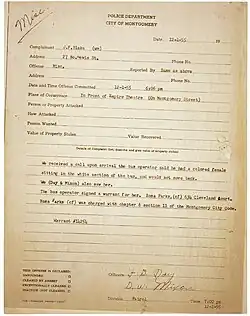 Misc
POLICE DEPARTMENT
CITY OF MONTGOMERY
Date 12-1-55 19
Complainant J.F. Blake (wm)
Address 27 No. Lewis St. Phone No.
Offense Misc. Reported By Same as above
Address Phone No.
Date and Time Offense Committed 12-1-55 6:06 pm
Place of Occurrence In Front of Empire Theatre (On Montgomery Street)
Person or Property Attacked
How Attacked
Person Wanted
Value of Property Stolen Value Recovered
Details of Complaint (list, describe and give value of property stolen)
We received a call upon arrival the bus operator said he had a colored female
sitting in the white section of the bus, and would not move back.
We (Day & Mixon) also saw her.
The bus operator signed a warrant for her. Rosa Parks, (cf) 634 Cleveland Court.
Rosa Parks (cf) was charged with chapter 6 section 11 of the Montgomery City Code.
Warrant
THIS OFFENSE IS DECLARED:
UNFOUNDED
CLEARED BY ARREST
EXCEPTIONALLY CLEARED
INACTIVE (NOT CLEARED)
Officers F. B. Day
D. W. Mixon
Division Patrol Time 7:00 pm
12-1-55